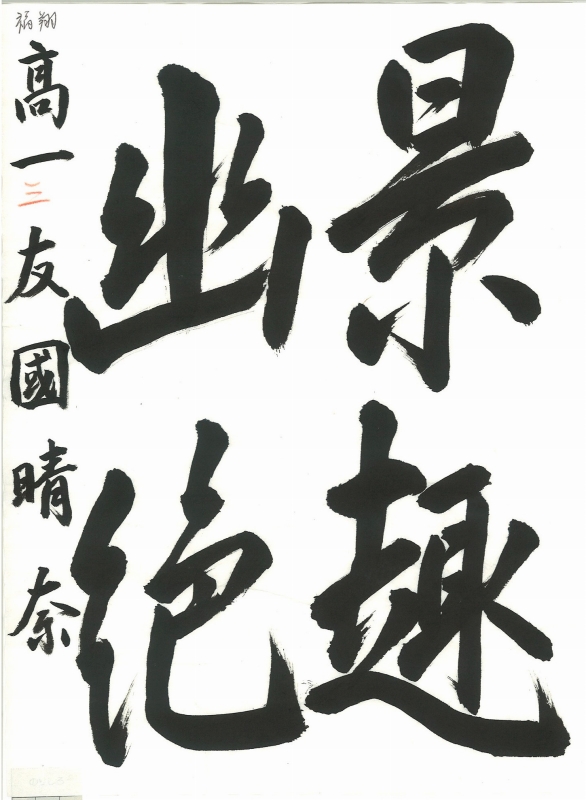 景趣
幽絶
福翔
高一三友國晴奈